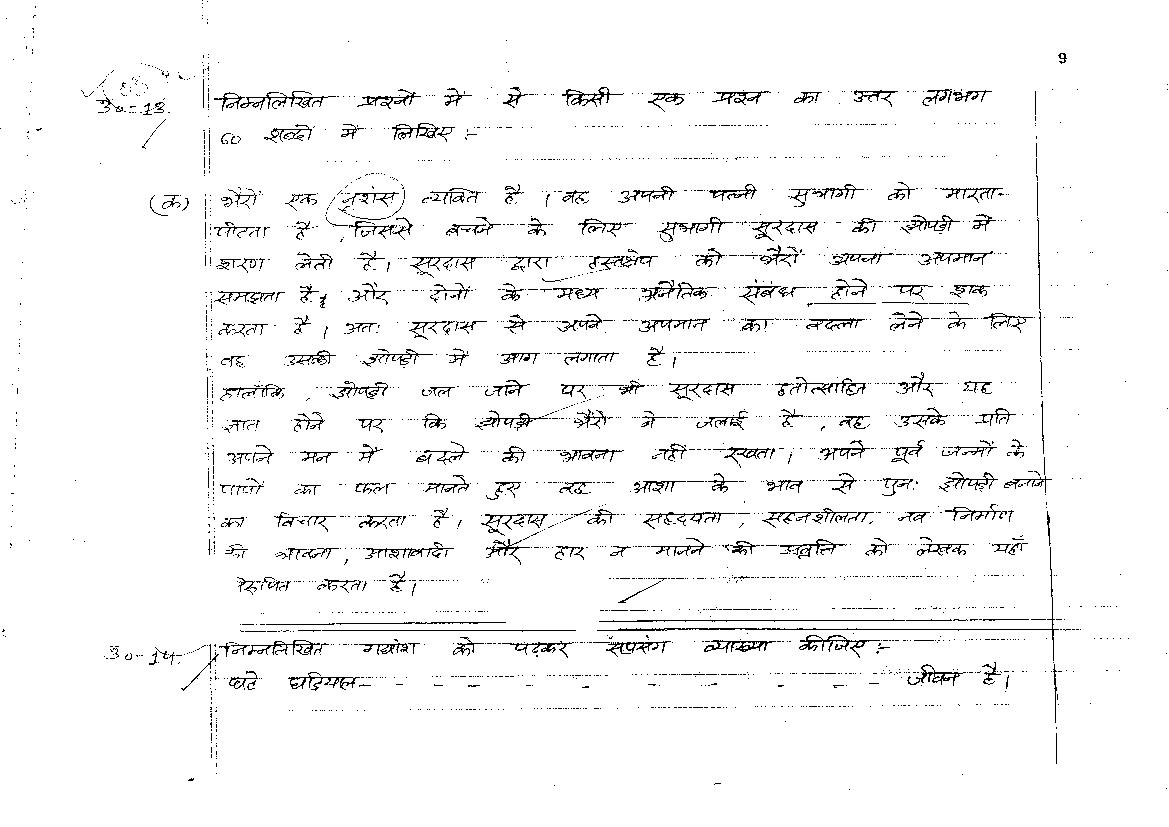 9
उ०-13. निम्नलिखित प्रश्नों में से किसी एक प्रश्न का उत्तर लगभग
60 शब्दों में लिखिए :-
(क) भैरों एक नृशंस व्यक्ति है। वह अपनी पत्नी सुभागी को मारता-
पीटता है, जिससे बचने के लिए सुभागी सूरदास की झोपड़ी में
शरण लेती है। सूरदास द्वारा हस्तक्षेप को भैरों अपना अपमान
समझता है, और दोनों के मध्य अनैतिक संबंध होने पर शक
करता है। अतः सूरदास से अपने अपमान का बदला लेने के लिए
वह उसकी झोपड़ी में आग लगाता है।
हालाँकि, झोपड़ी जल जाने पर भी सूरदास हतोत्साहित और यह
ज्ञात होने पर कि झोपड़ी भैरों ने जलाई है, वह उसके प्रति
अपने मन में बदले की भावना नहीं रखता। अपने पूर्व जन्मों के
पापों का फल मानते हुए वह आशा के भाव से पुनः झोपड़ी बनाने
का विचार करता है। सूरदास की सहृदयता, सहनशीलता, नव निर्माण
की भावना, आशावादी और हार न मानने की प्रवृत्ति को लेखक यहाँ
निरूपित करता है।
उ०-14. निम्नलिखित गद्यांश को पढ़कर सप्रसंग व्याख्या कीजिए :-
घंटे घड़ियाल - - - - - - - - - जीवन है।